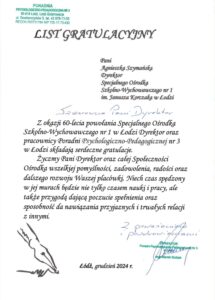 PORADNIA
PSYCHOLOGICZNO-PEDAGOGICZNA nr 3
LIST GRATULACYJNY
Pani
Agnieszka Szymańska
Dyrektor
Specjalnego Ośrodka
Szkolno-Wychowawczego nr 1
im. Janusza Korczaka w Łodzi
Szanowna Pani Dyrektor
Z okazji 60-lecia powołania Specjalnego Ośrodka
Szkolno-Wychowawczego nr 1 w Łodzi Dyrektor oraz
pracownicy Poradni Psychologiczno-Pedagogicznej nr 3
w Łodzi składają serdeczne gratulacje.
Życzymy Pani Dyrektor oraz całej Społeczności
Ośrodka wszelkiej pomyślności, zadowolenia, radości oraz
dalszego rozwoju Waszej placówki. Niech czas spędzony
w jej murach będzie nie tylko czasem nauki i pracy, ale
także przygodą dającą poczucie spełnienia oraz
sposobność do nawiązania przyjaznych i trwałych relacji
z innymi.
Z poważaniem
Łódź, grudzień 2024 r.